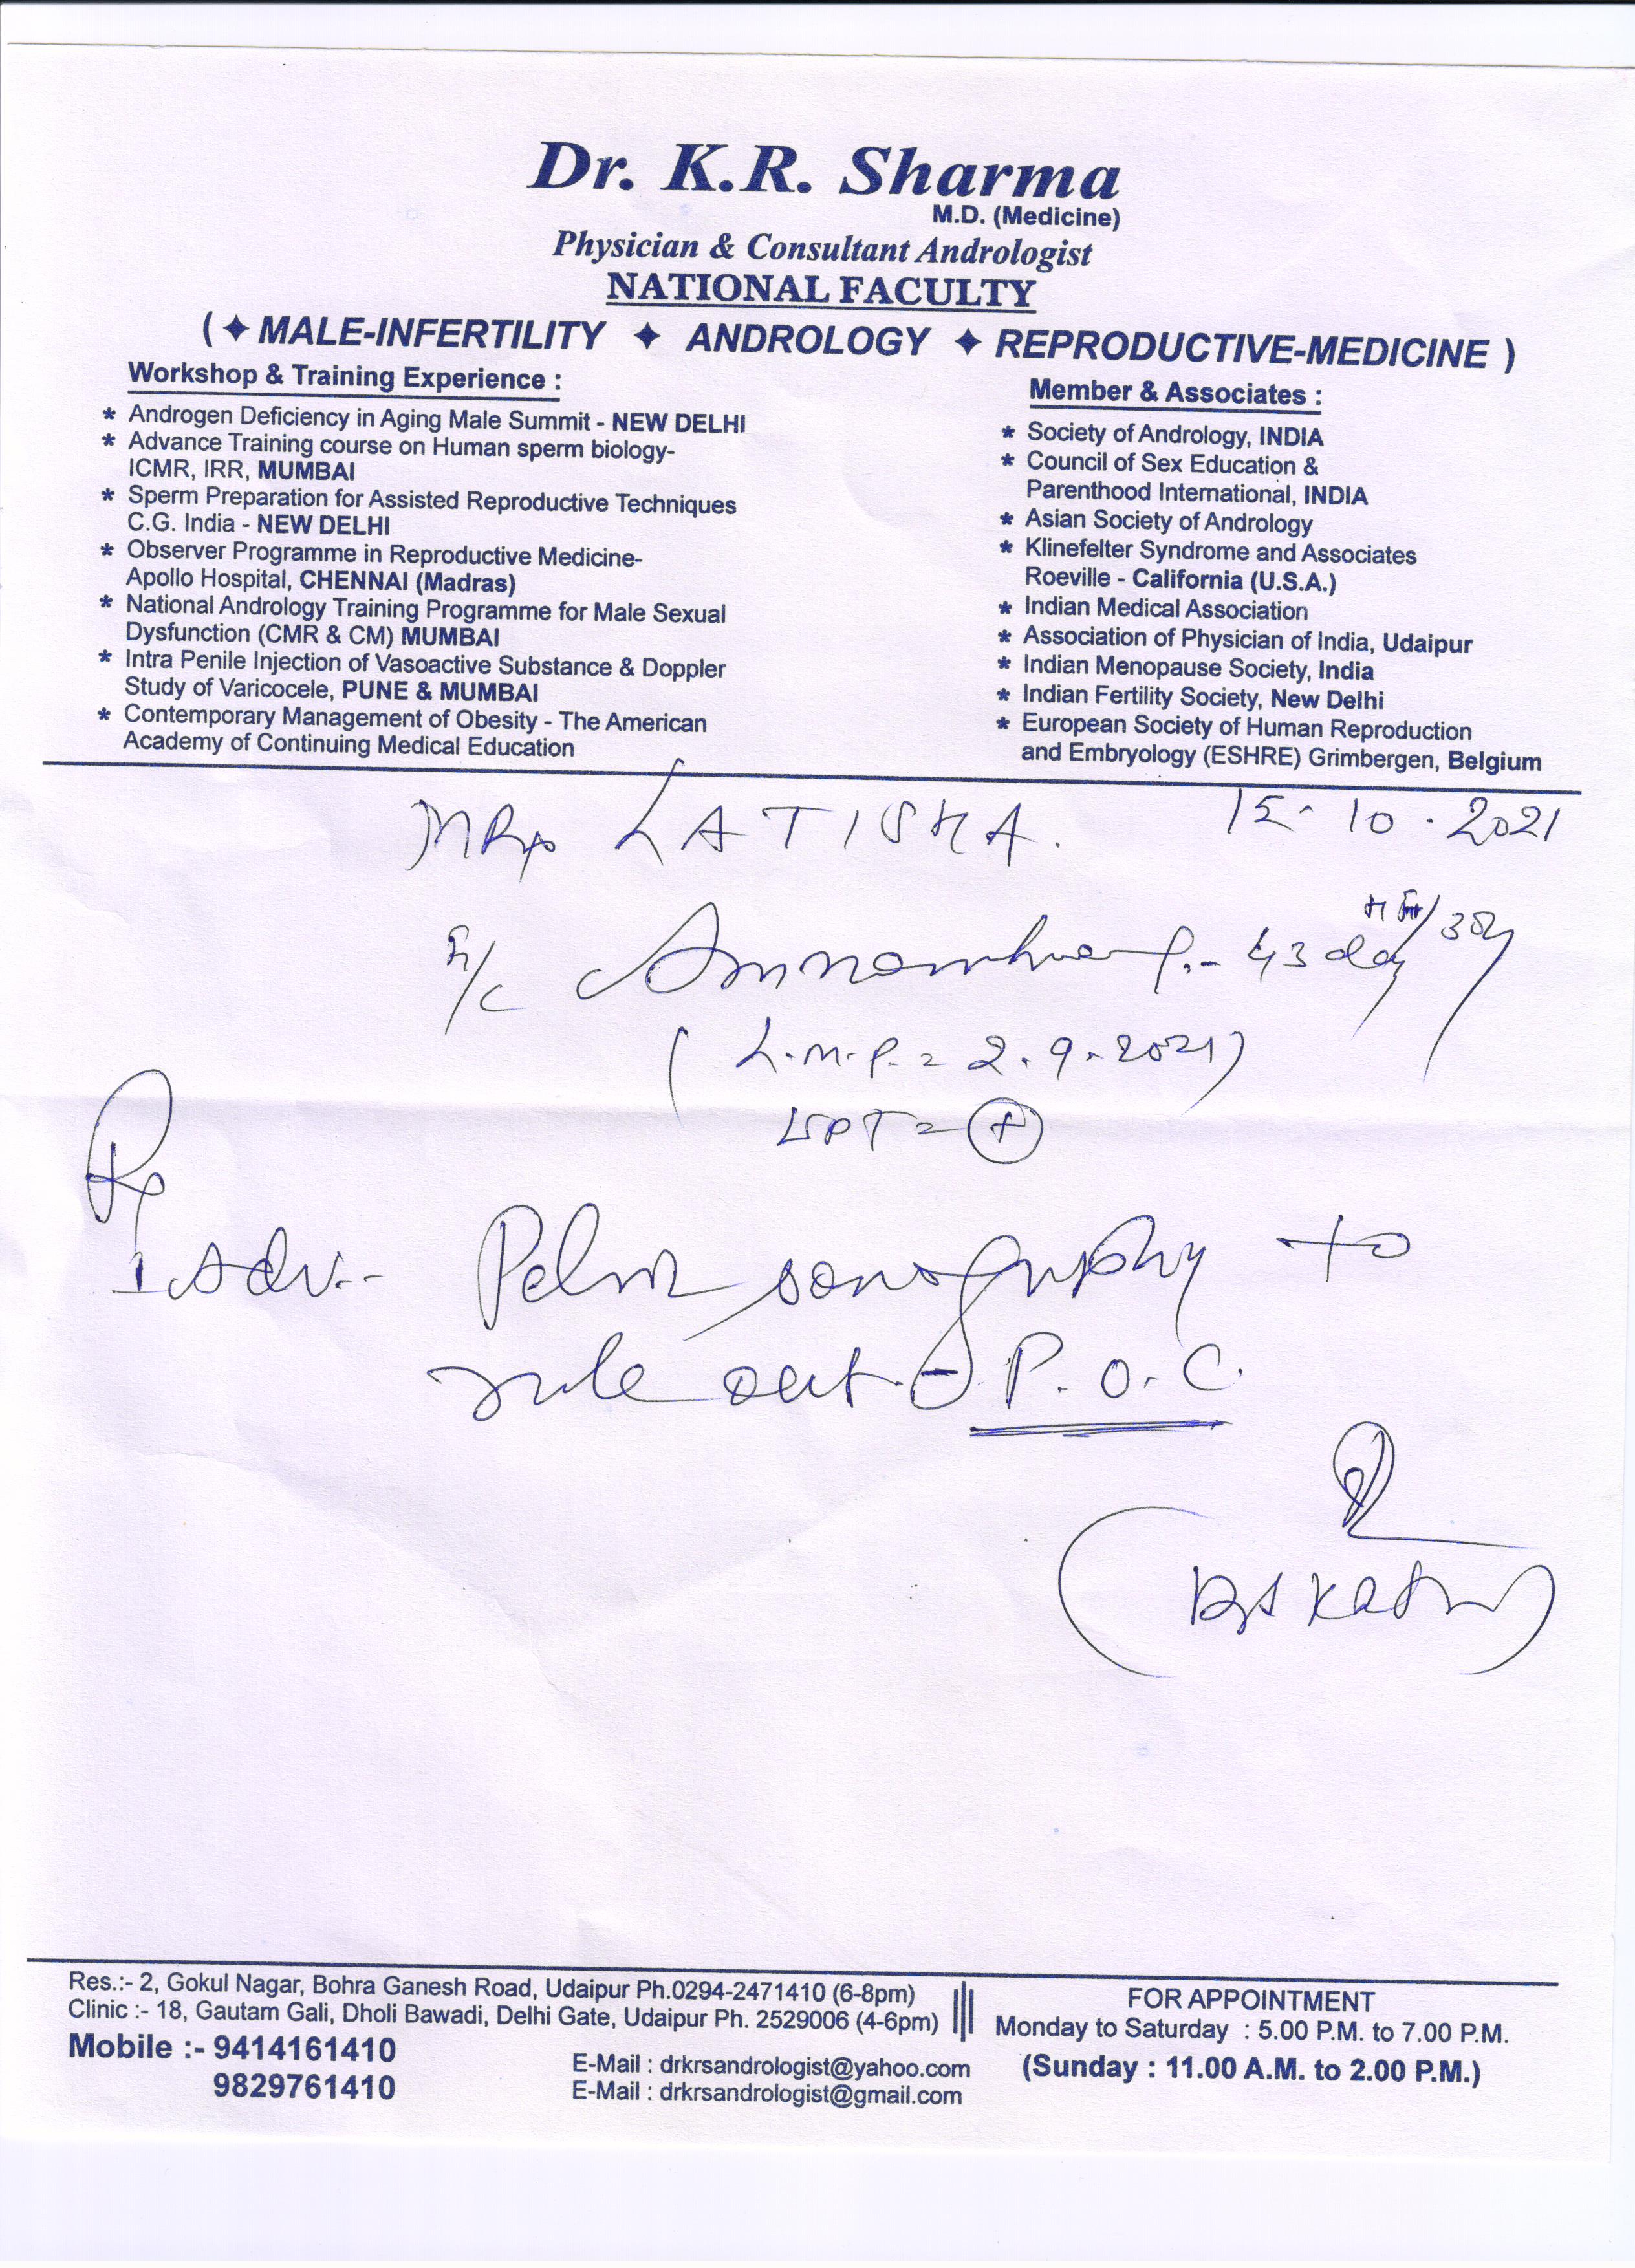 Dr. K.R. Sharma
M.D. (Medicine)
Physician & Consultant Andrologist
NATIONAL FACULTY
( ✦ MALE-INFERTILITY ✦ ANDROLOGY ✦ REPRODUCTIVE-MEDICINE )
Workshop & Training Experience :
* Androgen Deficiency in Aging Male Summit - NEW DELHI
* Advance Training course on Human sperm biology-
ICMR, IRR, MUMBAI
* Sperm Preparation for Assisted Reproductive Techniques
C.G. India - NEW DELHI
* Observer Programme in Reproductive Medicine-
Apollo Hospital, CHENNAI (Madras)
* National Andrology Training Programme for Male Sexual
Dysfunction (CMR & CM) MUMBAI
* Intra Penile Injection of Vasoactive Substance & Doppler
Study of Varicocele, PUNE & MUMBAI
* Contemporary Management of Obesity - The American
Academy of Continuing Medical Education
Member & Associates :
* Society of Andrology, INDIA
* Council of Sex Education &
Parenthood International, INDIA
* Asian Society of Andrology
* Klinefelter Syndrome and Associates
Roeville - California (U.S.A.)
* Indian Medical Association
* Association of Physician of India, Udaipur
* Indian Menopause Society, India
* Indian Fertility Society, New Delhi
* European Society of Human Reproduction
and Embryology (ESHRE) Grimbergen, Belgium
MRs LATISHA. 15.10.2021
43 day
( L.M.P. = 2.9.2021)
UPT = (+)
Rx
1. Adv.- Pelvic sonography to
rule out - P.O.C.
Res.:- 2, Gokul Nagar, Bohra Ganesh Road, Udaipur Ph.0294-2471410 (6-8pm)
Clinic :- 18, Gautam Gali, Dholi Bawadi, Delhi Gate, Udaipur Ph. 2529006 (4-6pm)
Mobile :- 9414161410
9829761410
E-Mail : drkrsandrologist@yahoo.com
E-Mail : drkrsandrologist@gmail.com
FOR APPOINTMENT
Monday to Saturday : 5.00 P.M. to 7.00 P.M.
(Sunday : 11.00 A.M. to 2.00 P.M.)